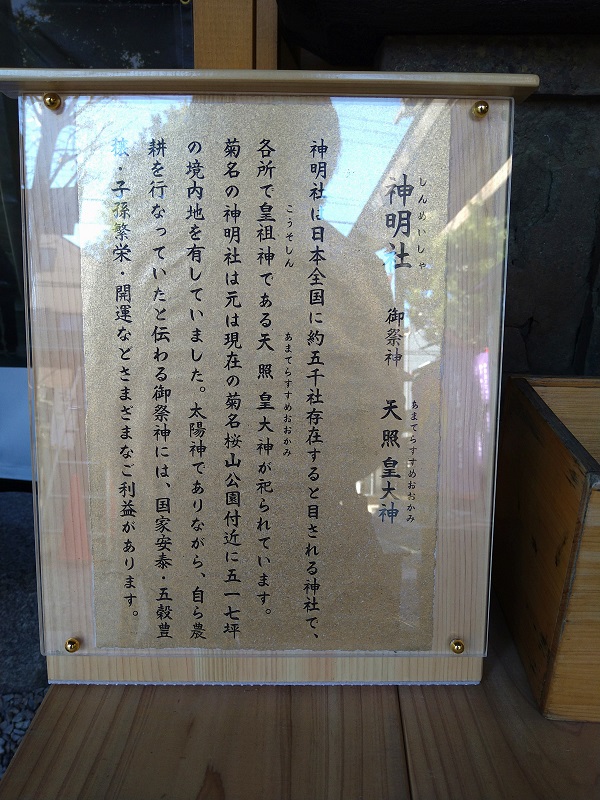 神明社 御祭神 天照皇大神
しんめいしゃ
あまてらすすめおおかみ
神明社は日本全国に約五千社存在すると目される神社で、
各所で皇祖神である天照皇大神が祀られています。
こうそしん
あまてらすすめおおかみ
菊名の神明社は元は現在の菊名桜山公園付近に五一七坪
の境内地を有していました。太陽神でありながら、自ら農
耕を行なっていたと伝わる御祭神には、国家安泰・五穀豊
穣・子孫繁栄・開運などさまざまなご利益があります。